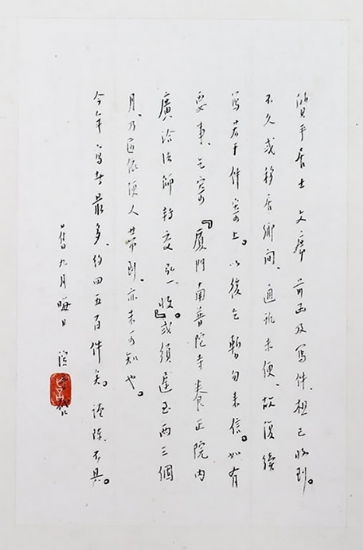 質平居士文席 前函及寫件、想已收到。
不久或移居鄉間、通訊未便、故復續
寫若干件寄上。以後乞暫勿來信。如有
要事、乞寄『廈門南普陀寺養正院內
廣洽法師轉交弘一收』。或須遲至兩三個
月、乃依便人帶到、亦未可知也。
今年寫最多、約四五百件矣。謹陳不具。
舊九月晦日 演